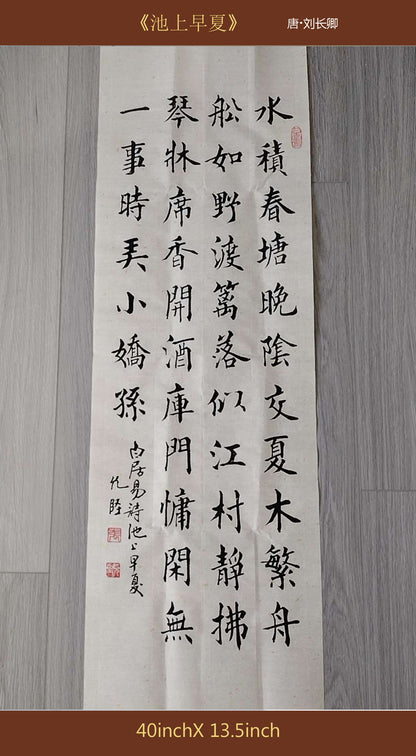 《池上早夏》
唐·刘长卿
水積春塘晚陰交夏木繁舟
舩如野渡籬落似江村靜拂
琴牀席香開酒庫門慵閑無
一事時弄小嬌孫
白居易詩池上早夏
40inchX 13.5inch